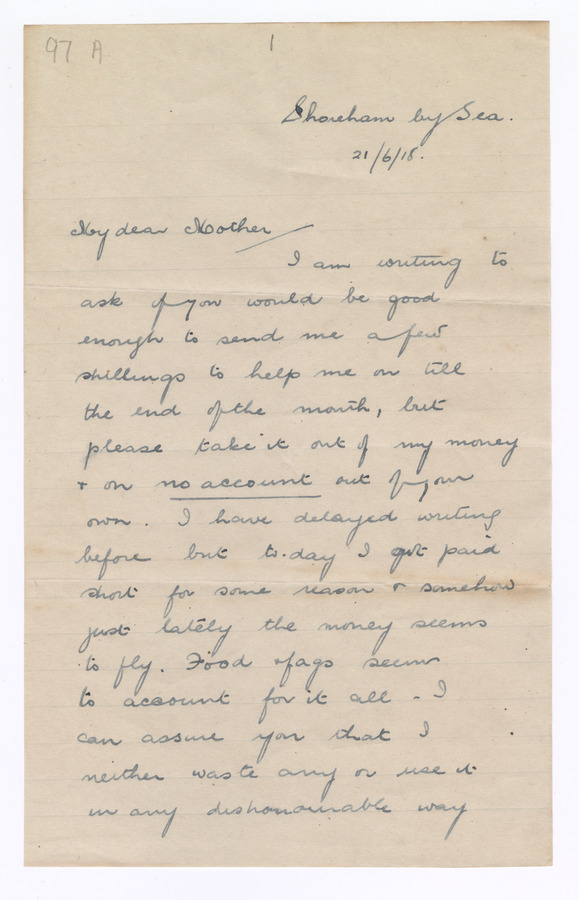 97 A
1
Shoreham by Sea.
21/6/18.
My dear Mother
I am writing to
ask if you would be good
enough to send me a few
shillings to help me on till
the end of the month, but
please take it out of my money
+ on no account out of your
own. I have delayed writing
before but to-day I got paid
short for some reason + somehow
just lately the money seems
to fly. Food + fags seem
to account for it all - I
can assure you that I
neither waste any or use it
in any dishonourable way